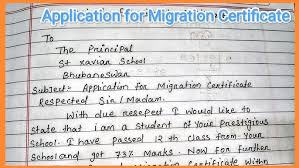 Application for Migration Certificate
To
The Principal
St Xavian School
Bhubaneswar
Subject:- Application for Migration Certificate
Respected Sir/Madam.
With due respect I would like to
state that i am a Student of Your Prestigious
School. I have passed 12th class from Your
School and got 73% Marks. Now For further
Migration Certificate With